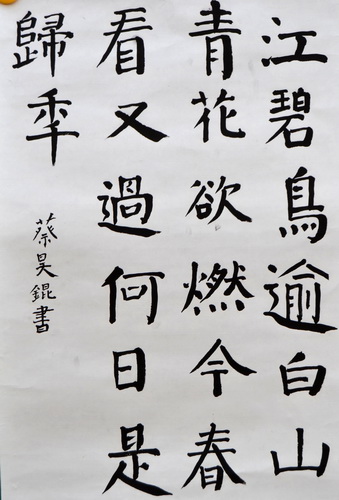 江碧鳥逾白山
青花欲燃今春
看又過何日是
歸秊
蔡昊錕書